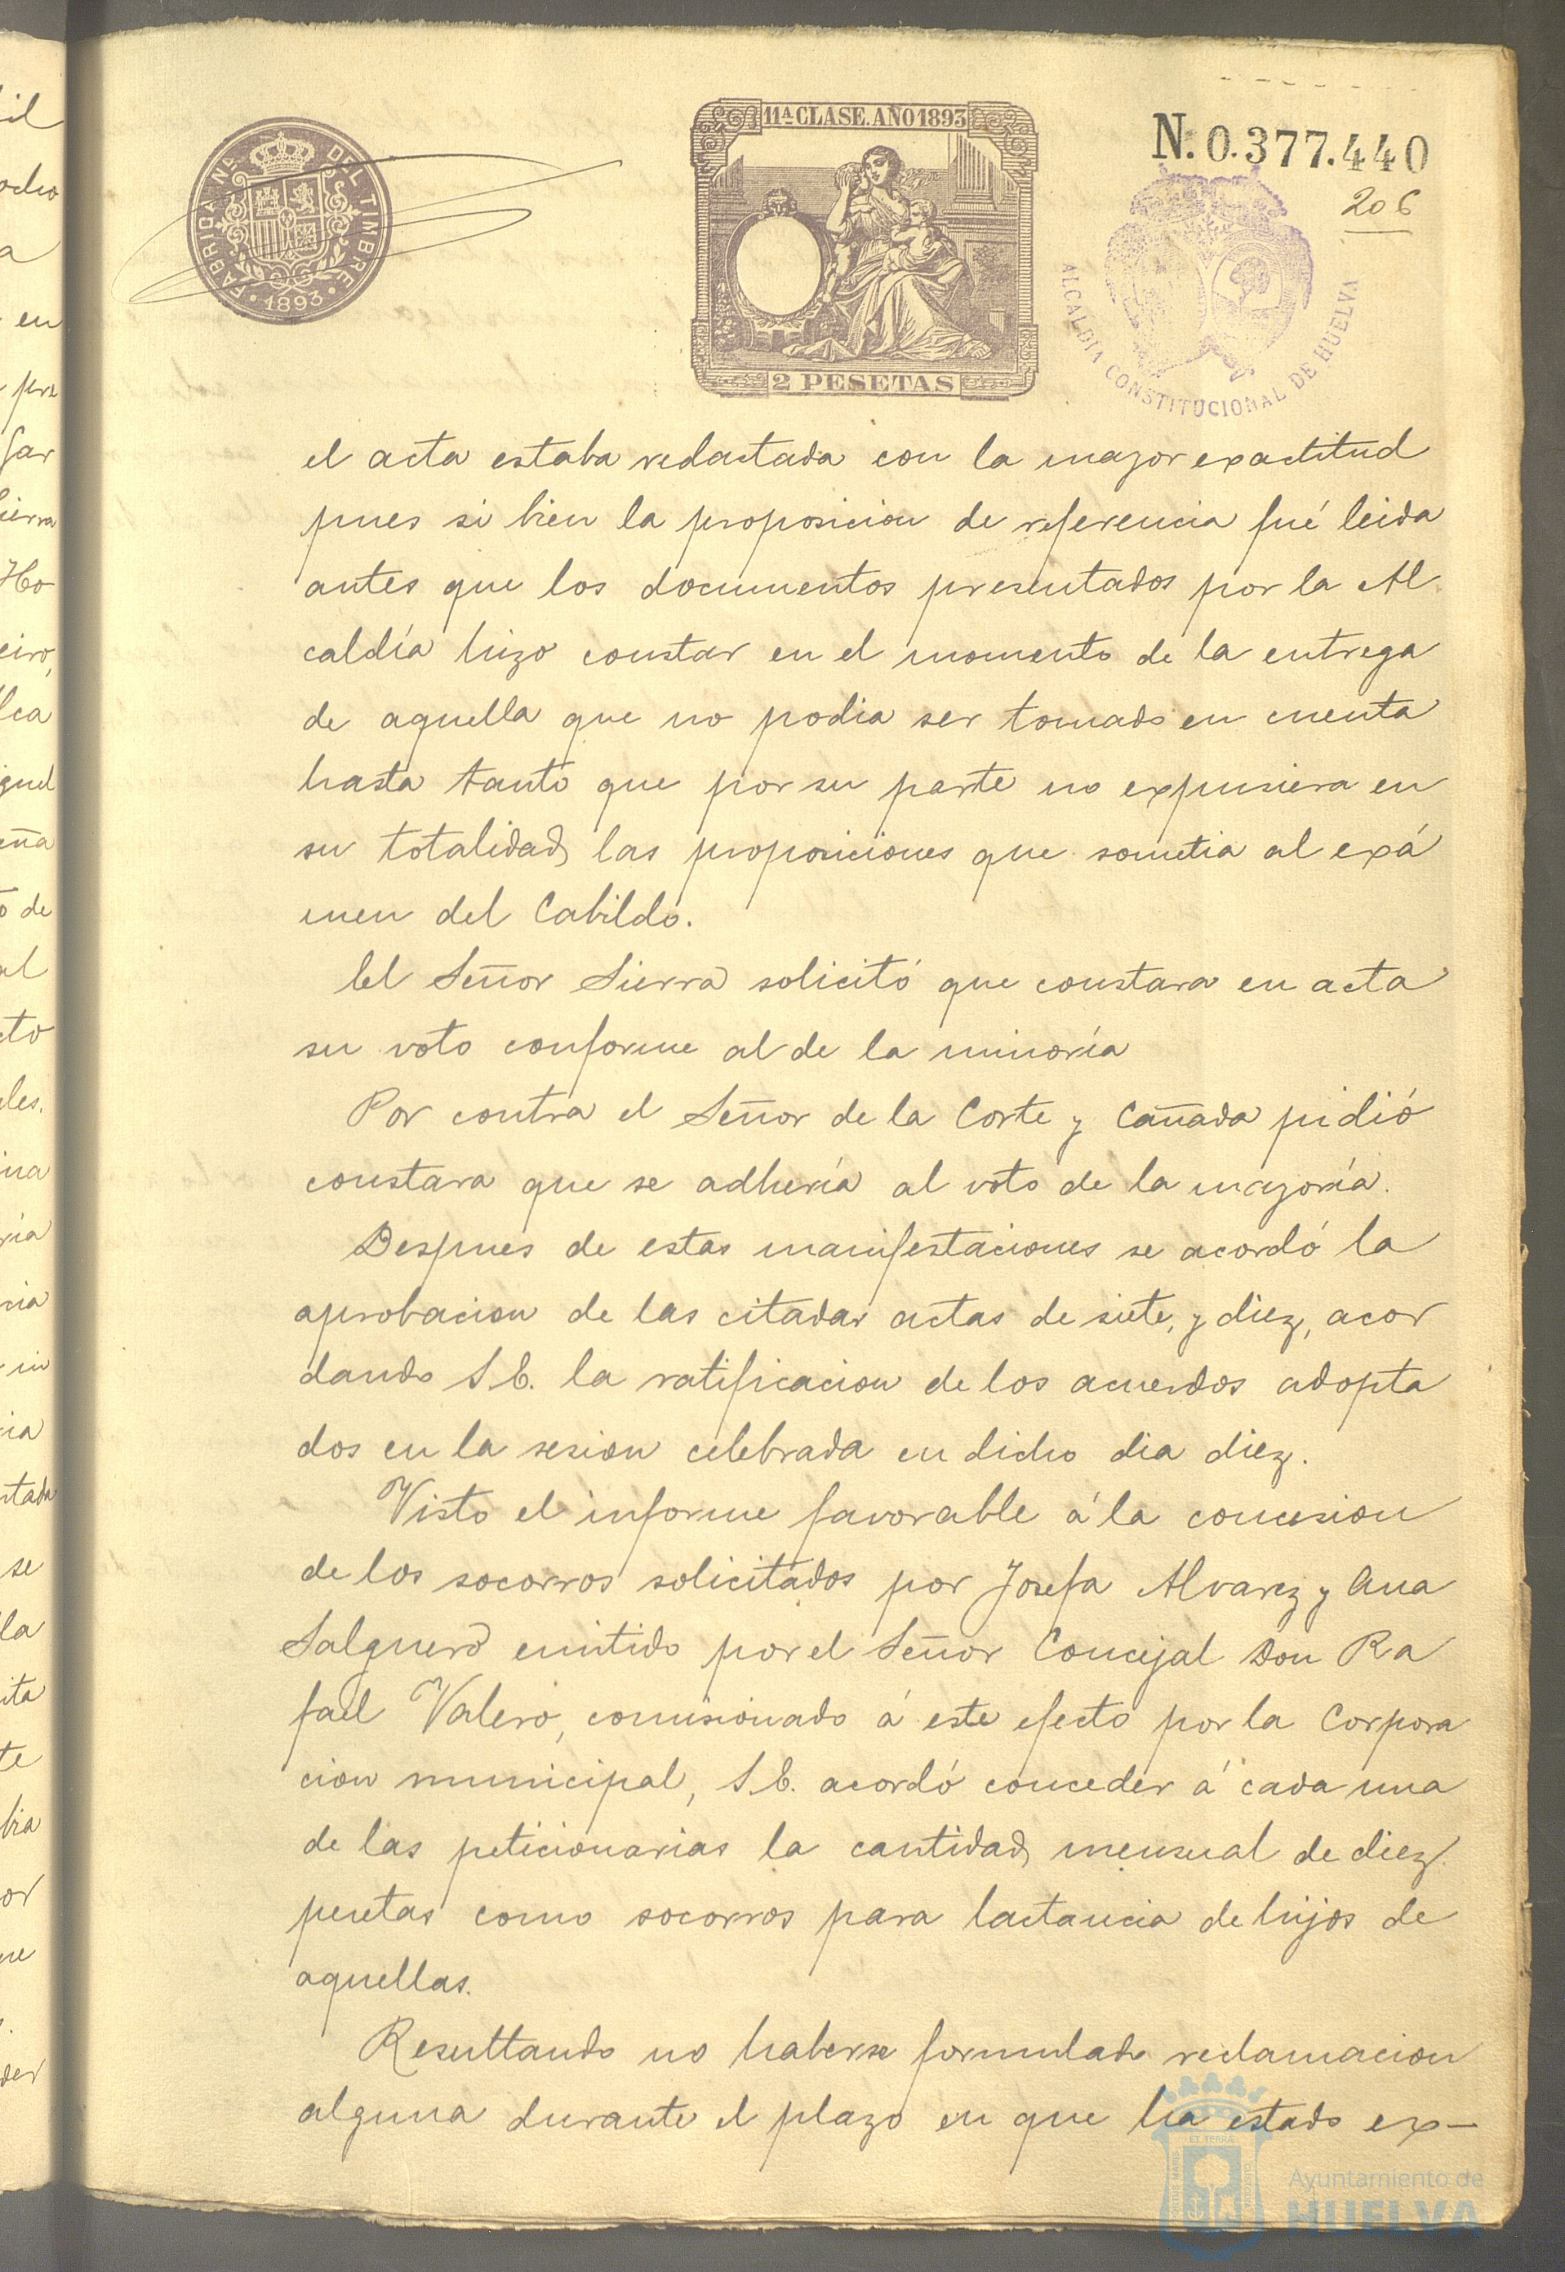 FABRICA NAL DEL TIMBRE
1893
11ª CLASE. AÑO 1893
2 PESETAS
N. 0.377.440
206
ALCALDIA CONSTITUCIONAL DE HUELVA
el acta estaba redactada con la mayor exactitud
pues si bien la proposicion de referencia fué leida
antes que los documentos presentados por la Al
caldía hizo constar en el momento de la entrega
de aquella que no podia ser tomado en cuenta
hasta tanto que por su parte no expusiera en
su totalidad las proposiciones que sometia al exá
men del Cabildo.
El Señor Sierra solicitó que constara en acta
su voto conforme al de la minoría
Por contra el Señor de la Corte y Cañada pidió
constara que se adhería al voto de la mayoría.
Despues de estas manifestaciones se acordó la
aprobacion de las citadas actas de siete, y diez, acor
dando S. E. la ratificacion de los acuerdos adopta
dos en la sesion celebrada en dicho dia diez.
Visto el informe favorable á la concesion
de los socorros solicitados por Josefa Alvarez y Ana
Salguero emitido por el Señor Concejal Don Ra
fael Valero, comisionado á este efecto por la Corpora
cion municipal, S. E. acordó conceder á cada una
de las peticionarias la cantidad mensual de diez
pesetas como socorros para lactancia de hijos de
aquellas.
Resultando no haberse formulado reclamacion
alguna durante el plazo en que ha estado ex-
Ayuntamiento de
HUELVA